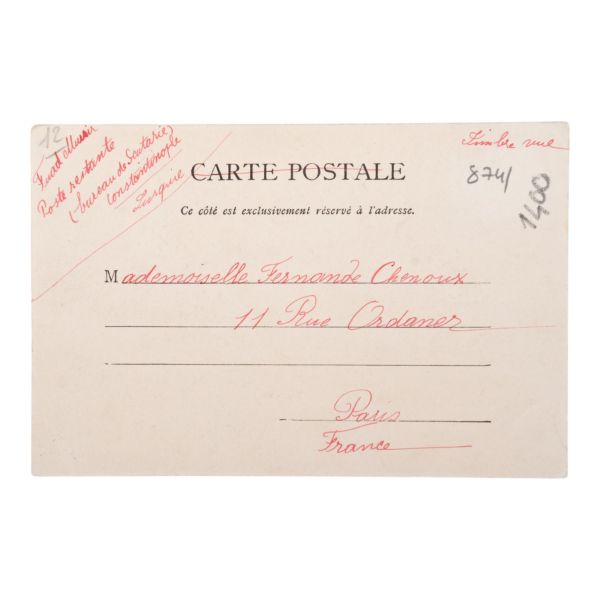 12
Fuad
Poste restante
(bureau de Scutarie)
Constantinople
Turquie
Timbre vue
CARTE POSTALE
874/
1400
Ce côté est exclusivement réservé à l'adresse.
Mademoiselle Fernande Chenoux
11 Rue Ordaner
Paris
France